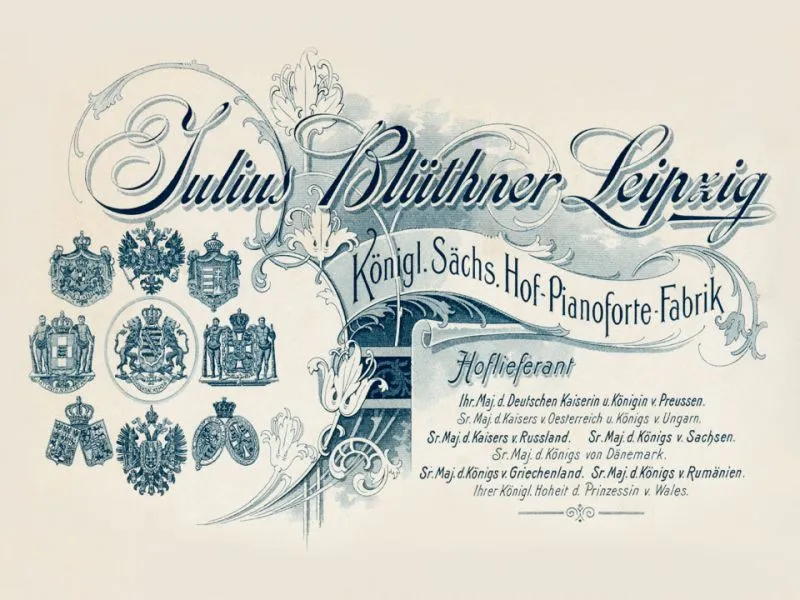 Julius Blüthner Leipzig
Königl. Sächs. Hof-Pianoforte-Fabrik
Hoflieferant
Ihr. Maj. d. Deutschen Kaiserin u. Königin v. Preussen.
Sr. Maj. d. Kaisers v. Oesterreich u. Königs v. Ungarn.
Sr. Maj. d. Kaisers v. Russland. Sr. Maj. d. Königs v. Sachsen.
Sr. Maj. d. Königs von Dänemark.
Sr. Maj. d. Königs v. Griechenland. Sr. Maj. d. Königs v. Rumänien.
Ihrer Königl. Hoheit d. Prinzessin v. Wales.